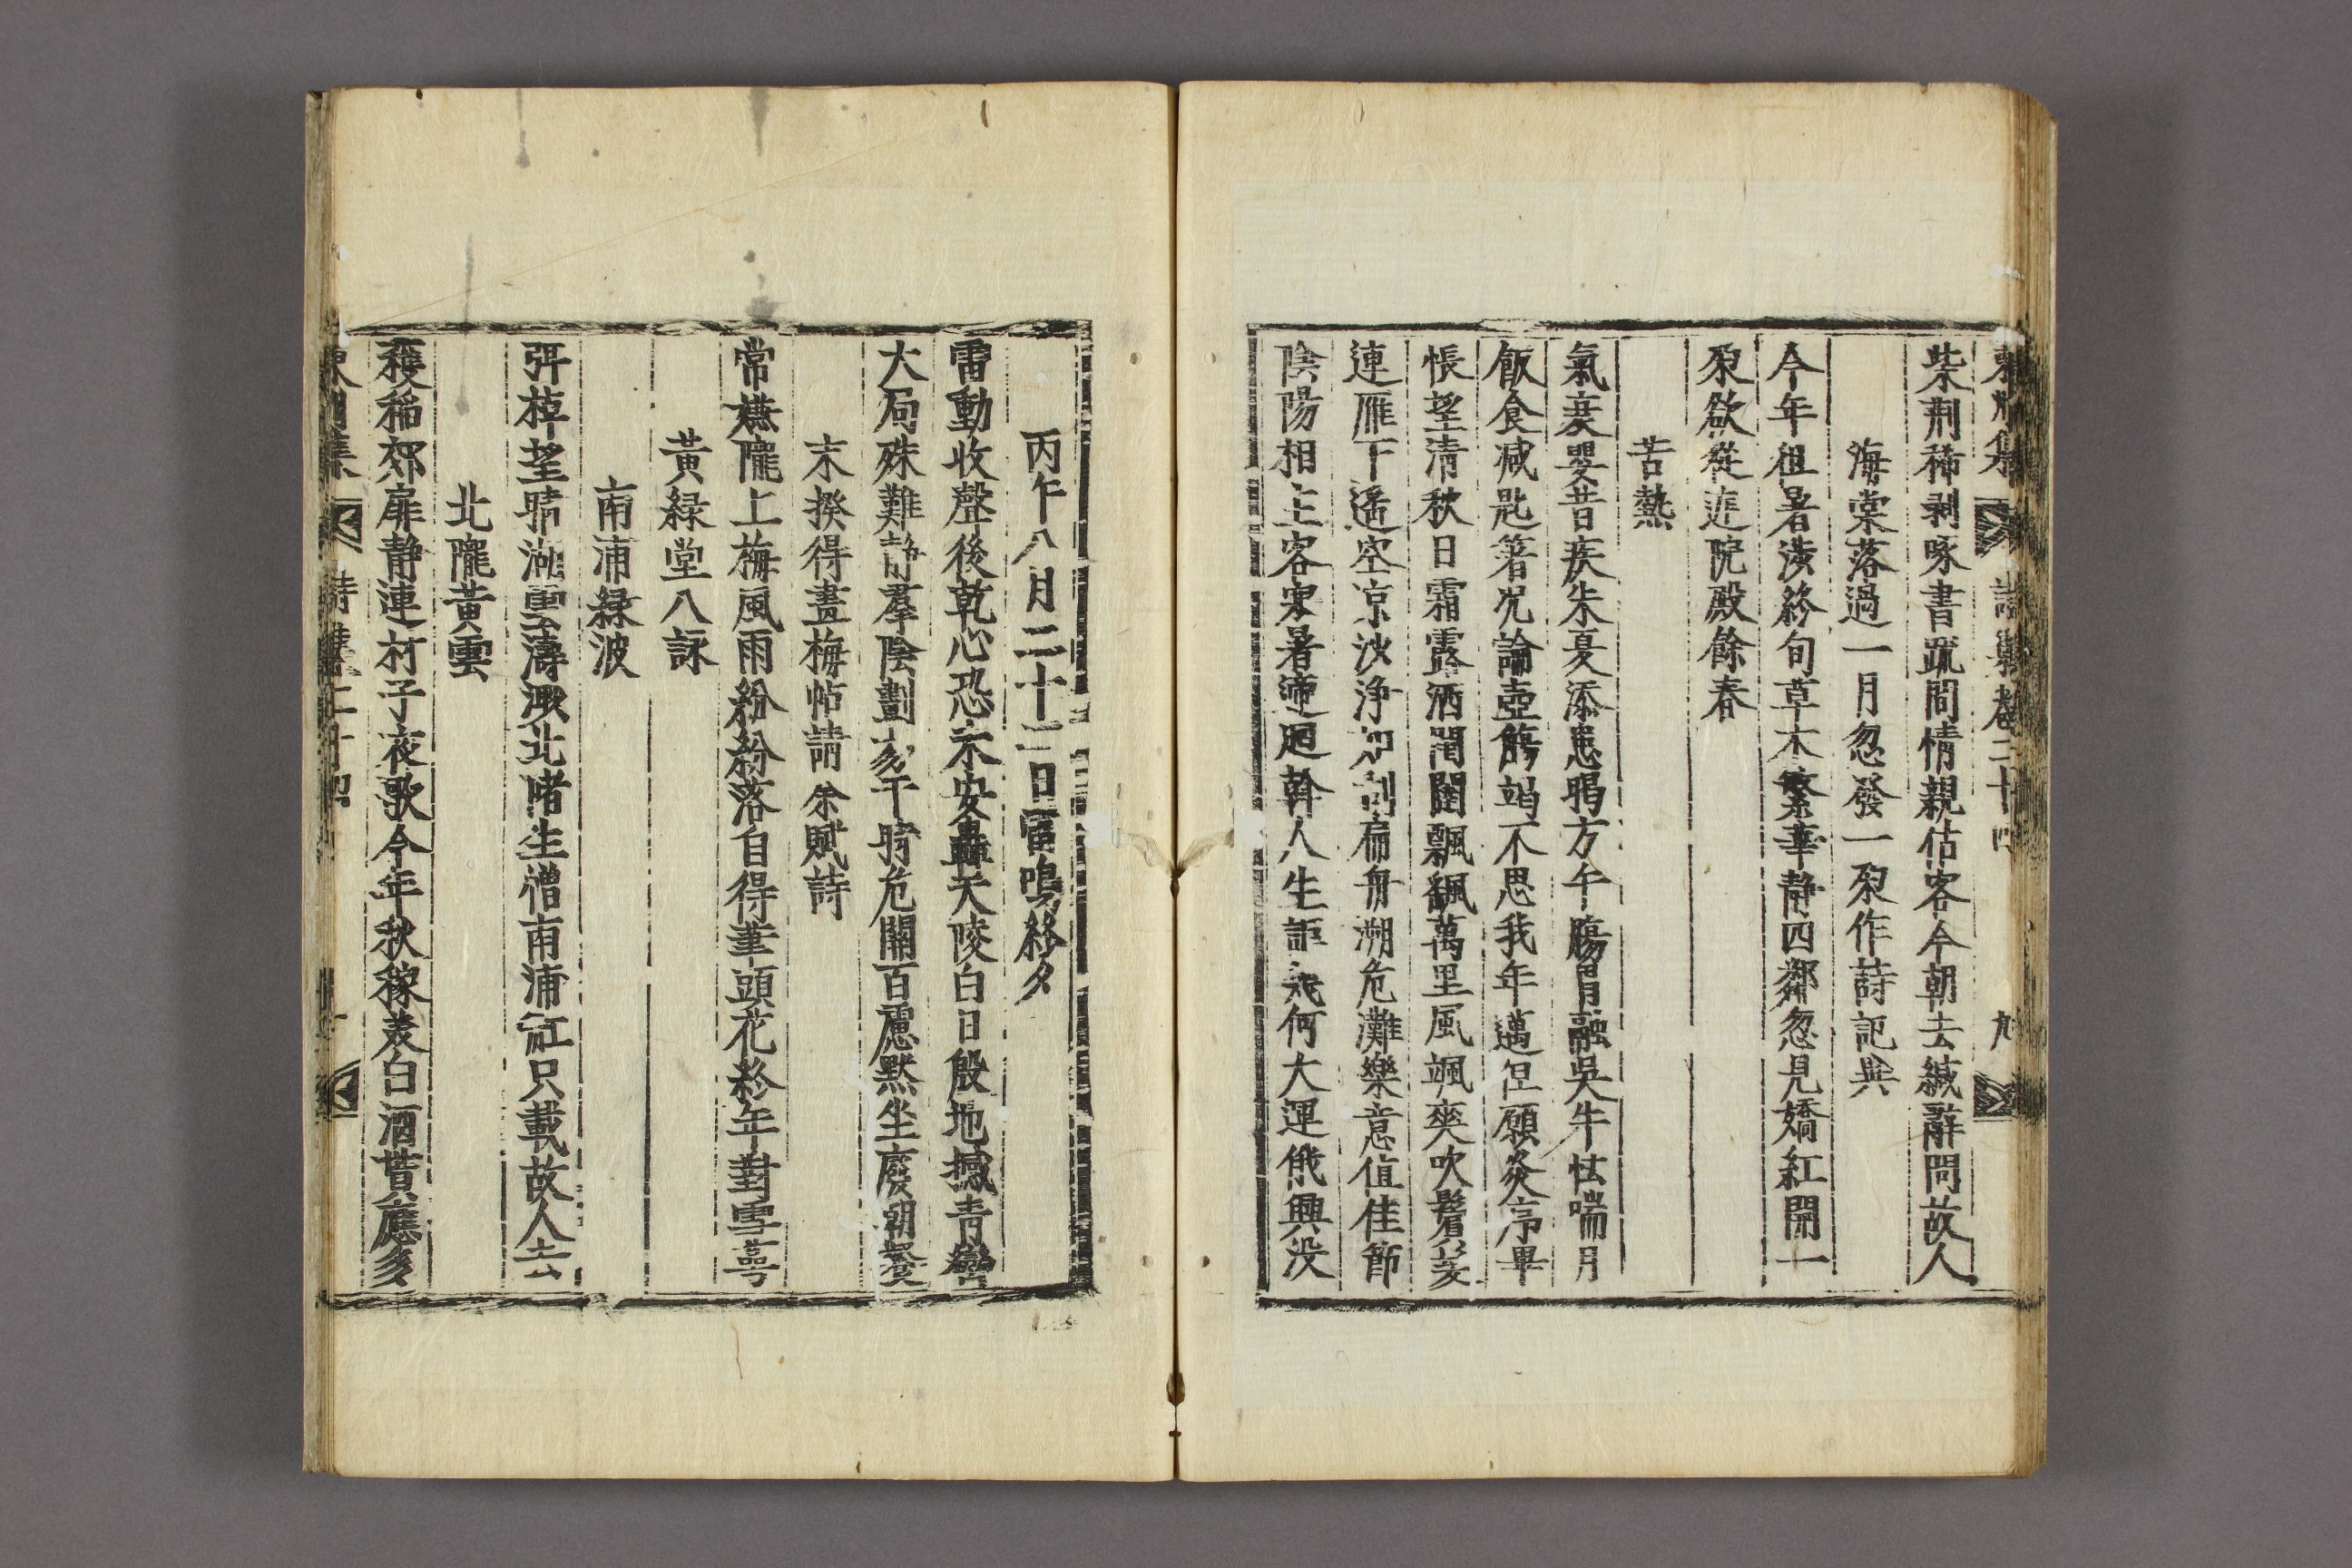 東州集 詩集卷二十四 九
柴荆稀剥啄書疏間情親估客今朝去緘辭問故人
海棠落過一月忽發一朶作詩記興
今年徂暑潦終旬草木繁華静四鄰忽見嬌紅開一
朶欲從進院殿餘春
苦熱
氣衰嬰昔疾朱夏添患暍方午腸胃融吳牛怯喘月
飯食减匙箸况論壺觴竭不思我年邁但願炎序畢
悵望清秋日霜露洒閶闔飄飄萬里風颯爽吹鬢髮
連雁下遥空凉沙浄如刮扁舟溯危灘樂意值佳節
陰陽相主客寒暑遞廻斡人生詎幾何大運俄興没
丙午八月二十二日雷鳴終夕
雷動收聲後乾心恐示安轟天陵白日殷地撼青巒
大局殊難静羣陰劃多干時危關百慮黙坐廢朝餐
末揆得畫梅帖請余賦詩
常嫌隴上梅風雨紛紛落自得筆頭花終年對雪萼
黄緑堂八詠
南浦緑波
弭棹望晴湖雪濤溅北渚生憎南浦舡只載故人去
北隴黄雲
穫稲郊扉静連村子夜歌今年秋稼美白酒貰應多
東州集 詩集二十四